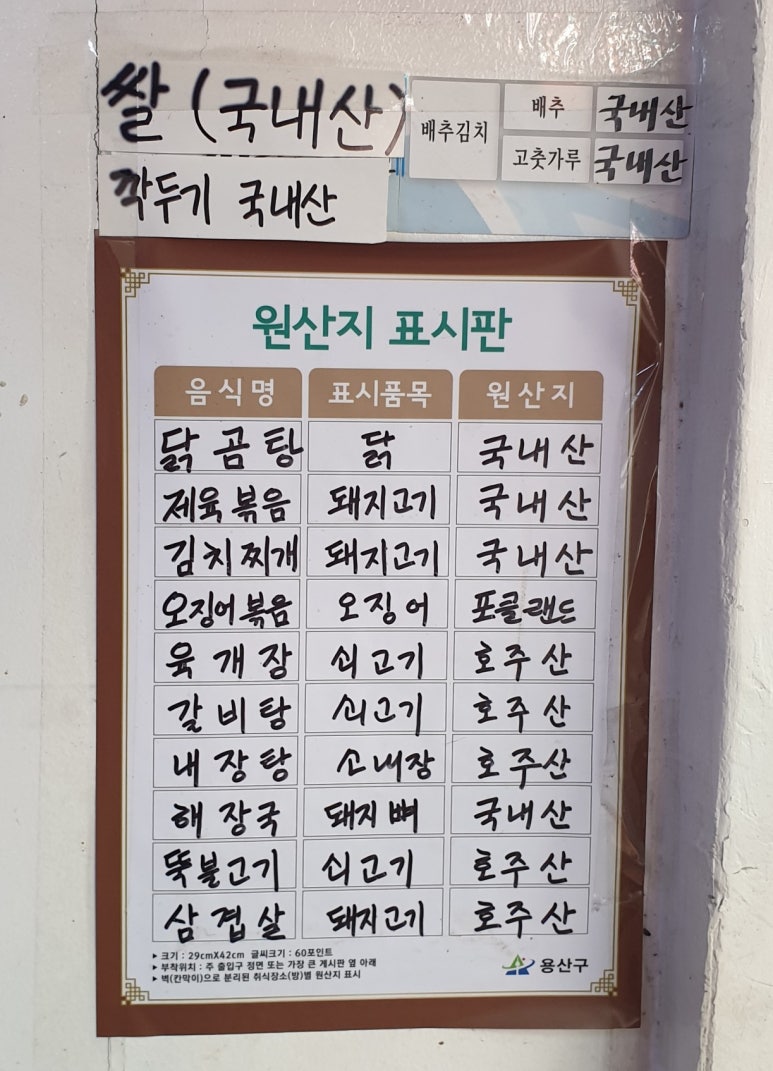 쌀 (국내산)
배추김치 배추 국내산
고춧가루 국내산
깍두기 국내산
원산지 표시판
음식명 표시품목 원산지
닭곰탕 닭 국내산
제육볶음 돼지고기 국내산
김치찌개 돼지고기 국내산
오징어볶음 오징어 포클랜드
육개장 쇠고기 호주산
갈비탕 쇠고기 호주산
내장탕 소내장 호주산
해장국 돼지뼈 국내산
뚝불고기 쇠고기 호주산
삼겹살 돼지고기 호주산
▸ 크기 : 29cmX42cm 글씨크기 : 60포인트
▸ 부착위치 : 주 출입구 정면 또는 가장 큰 게시판 옆 아래
▸ 벽(칸막이)으로 분리된 취식장소(방)별 원산지 표시
용산구